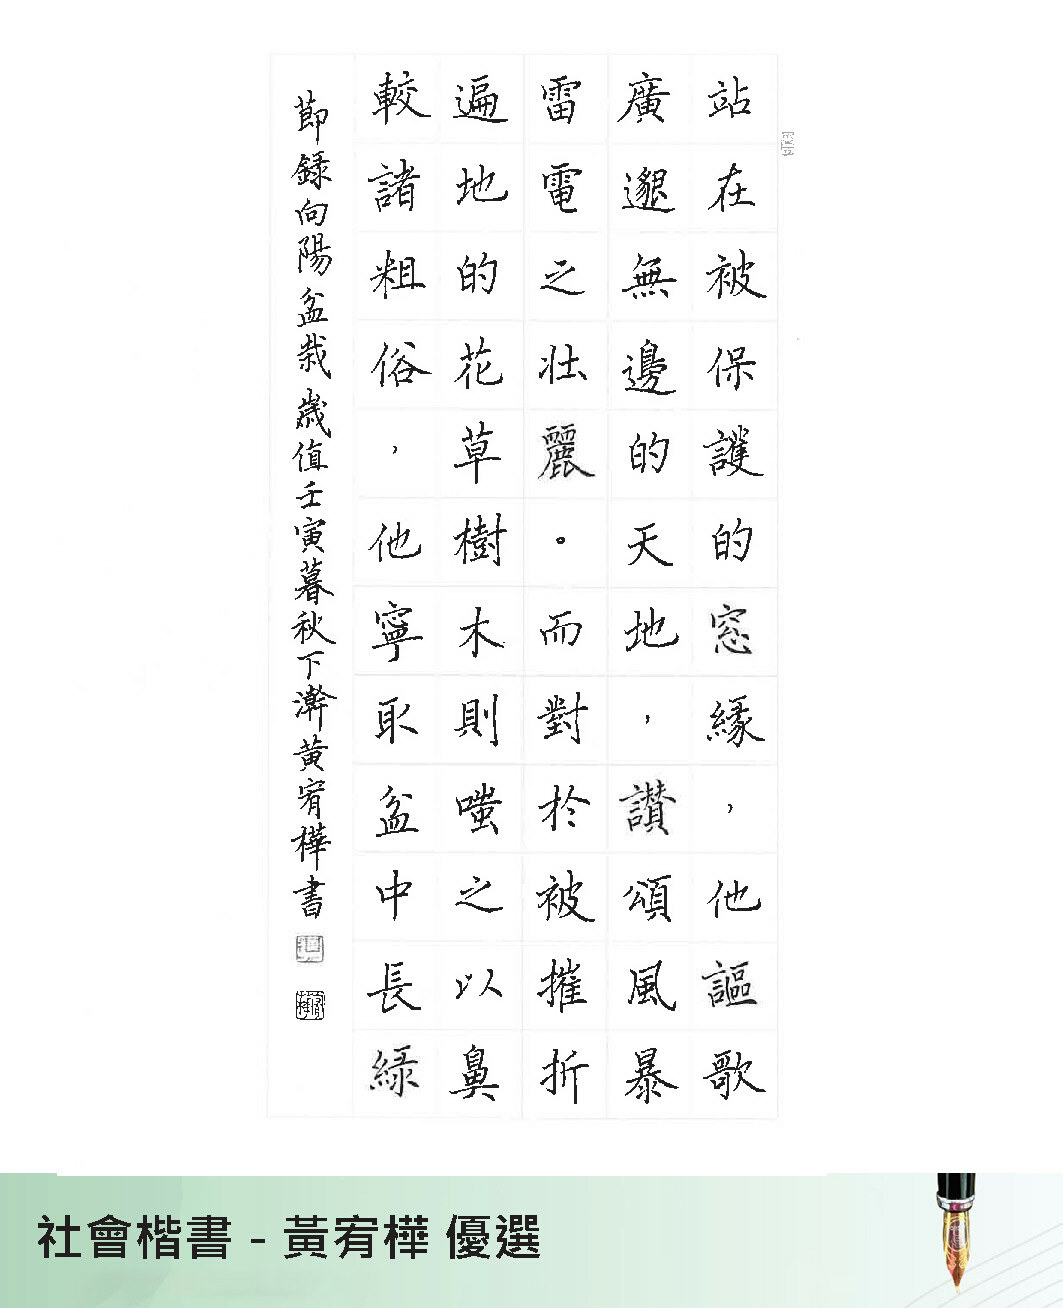 站在被保護的窓緣，他謳歌
廣邈無邊的天地，讚頌風暴
雷電之壯麗。而對於被摧折
遍地的花草樹木則嗤之以鼻
較諸粗俗，他寧取盆中長綠
節錄向陽盆栽歲值壬寅暮秋下澣黃宥樺書
社會楷書 - 黃宥樺 優選